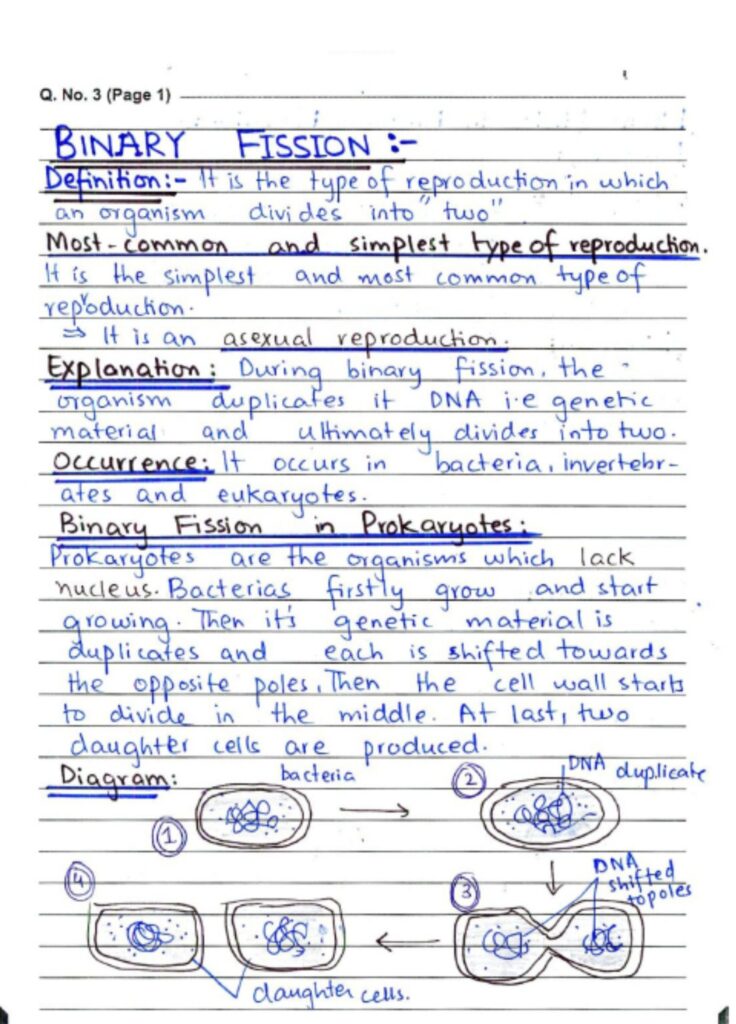 Q. No. 3 (Page 1)
BINARY FISSION :-
Definition:- It is the type of reproduction in which
an organism divides into "two"
Most-common and simplest type of reproduction.
It is the simplest and most common type of
reproduction.
⇒ It is an asexual reproduction.
Explanation: During binary fission, the
organism duplicates it DNA i.e genetic
material and ultimately divides into two.
Occurrence: It occurs in bacteria, invertebr-
ates and eukaryotes.
Binary Fission in Prokaryotes:
Prokaryotes are the organisms which lack
nucleus. Bacterias firstly grow and start
growing. Then it's genetic material is
duplicates and each is shifted towards
the opposite poles, Then the cell wall starts
to divide in the middle. At last, two
daughter cells are produced.
Diagram:
bacteria
1
2
DNA duplicate
3
DNA
shifted
topoles
4
daughter cells.